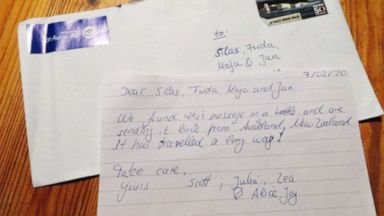 Par Avion Air
to:
Silas, Frida,
Maju & Jan
7/02/20
Dear Silas, Frida, Maja and Jan
We found this message in a bottle and are
sending it back from Auckland, New Zealand.
It has travelled a long way!
Take care,
Yours Scott, Julia, Zea
& Alice Joy